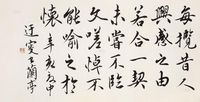 每攬昔人
興感之由
若合一契
未嘗不臨
文嗟悼不
能喻之於
懷 辛亥
蘭亭